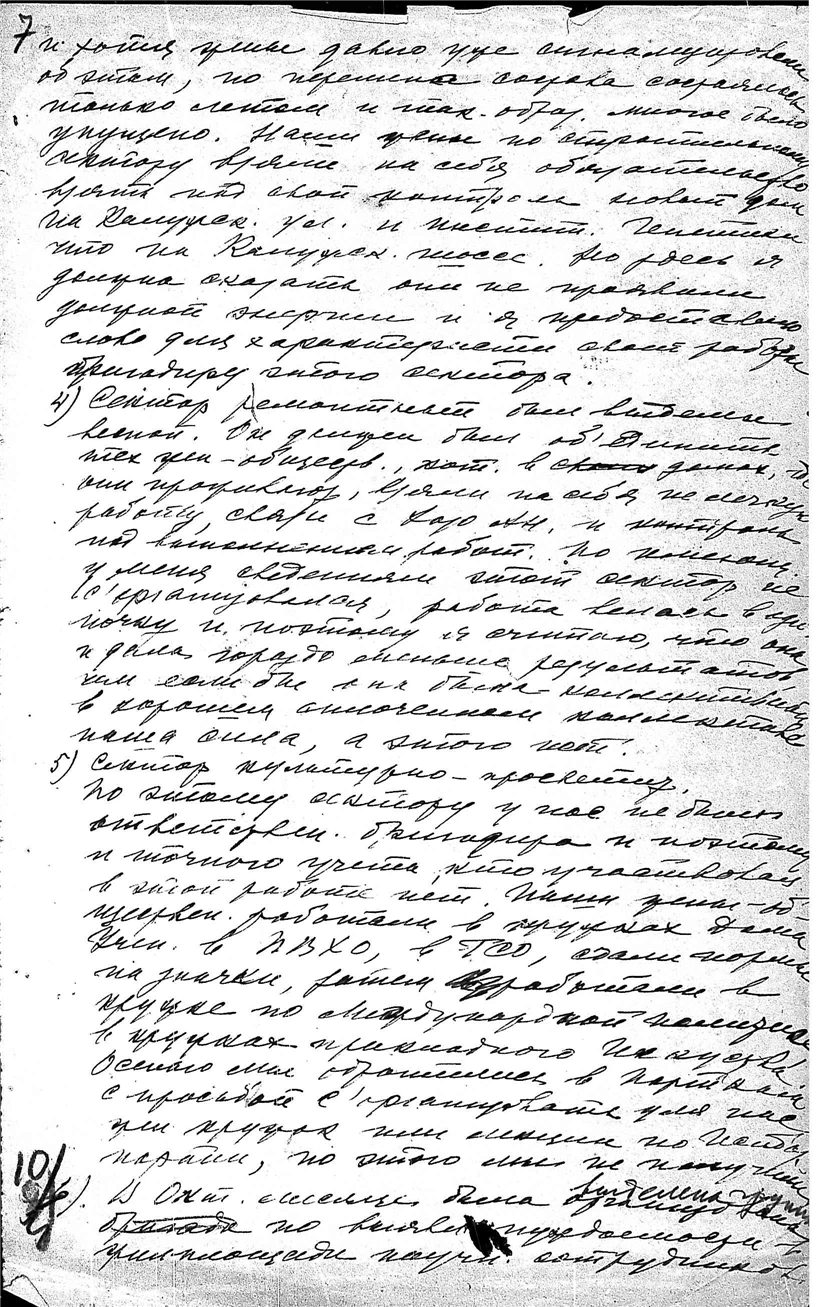 7
и хотя жены давно уже сигнализировали
об этом, но перемена состава состоялась
только летом и так. образ. многое было
упущено. Наши жены по строительному
сектору взяли на себя обязательство
взять под свой контроль новый дом
на Калужск. ул. и Инстит. Генетики
что на Калужск. шоссе. Но здесь я
должна сказать они не проявили
должной энергии и я предоставлю
слово для характеристи своей работы
бригадиру этого сектора.
4) Сектор ремонтный был выделен
весной. Он должен был об'единить
тех жен-обществ., кот. в домах, где
они проживают, взяли на себя не легкую
работу связи с и контроль
над выполнением работ. По имеющ.
у меня сведениям этот сектор не
с'организовался, работа велась в оди-
ночку и поэтому я считаю, что она
и дала гораздо меньше результатов
чем если бы она была коллективной
в хорошем сплоченном коллективе
наша сила, а этого нет.
5) Сектор культурно-просветит.
По этому сектору у нас не было
ответствен. бригадира и поэтому
и точного учета кто участвовал
в этой работе нет. Наши жены-об-
ществен. работали в кружках Дома
Учен. в ПВХО, в ГСО, сдали нормы
на значки, затем работали в
кружке по Международной политике
в кружках прикладного Искусства
Осенью мы обратились в Партком
с просьбой с'организовать для нас
жен кружок или лекции по Истор.
партии, но этого мы не получили
10/
6). В Окт. месяце была выделена группа
бригада по выявл нуждаемости в
жилплощади научн. сотрудников